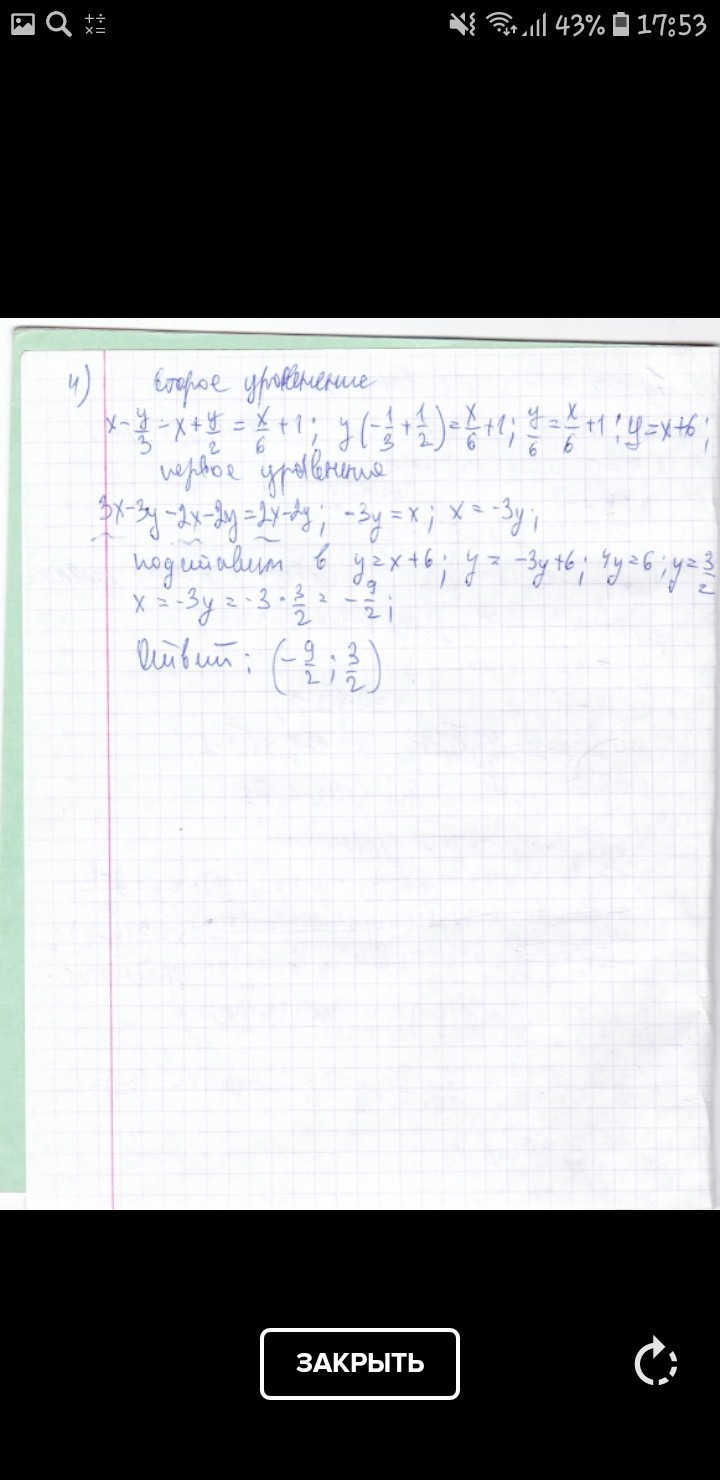 43% 17:53
4) Второе уравнение
x - y/3 - x + y/2 = x/6 + 1; y(-1/3 + 1/2) = x/6 + 1; y/6 = x/6 + 1; y = x+6;
первое уравнения
3x-3y-2x-2y=2x-2y; -3y=x; x=-3y;
подставим в y=x+6; y=-3y+6; 4y=6; y=3/2
x=-3y=-3·3/2=-9/2;
Ответ: (-9/2; 3/2)
ЗАКРЫТЬ